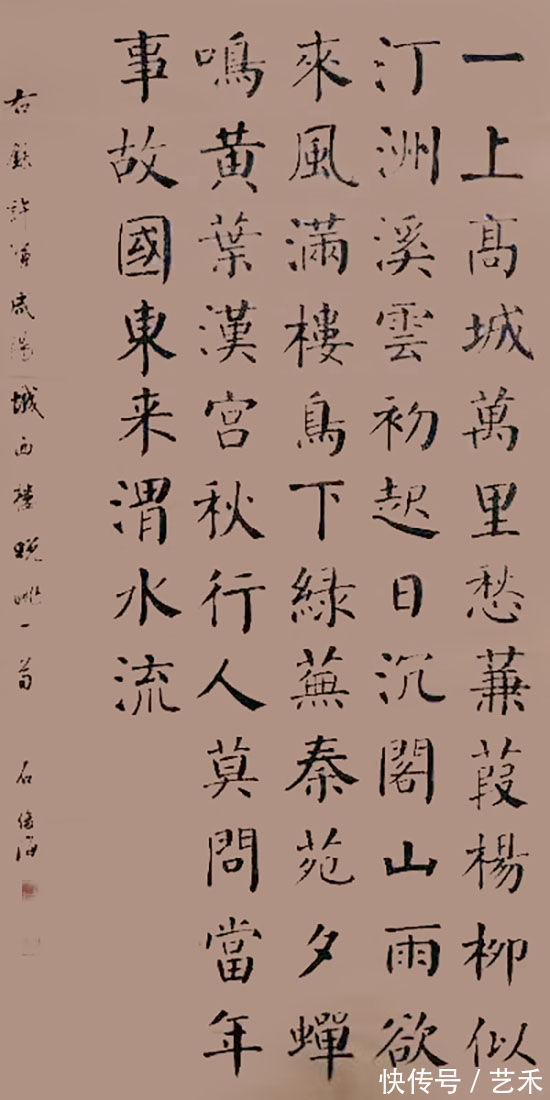 一上高城萬里愁蒹葭楊柳似
汀洲溪雲初起日沉閣山雨欲
來風滿樓鳥下綠蕪秦苑夕蟬
鳴黃葉漢宮秋行人莫問當年
事故國東来渭水流
右錄許渾咸陽城西樓晚眺一首
石
快传号／艺禾